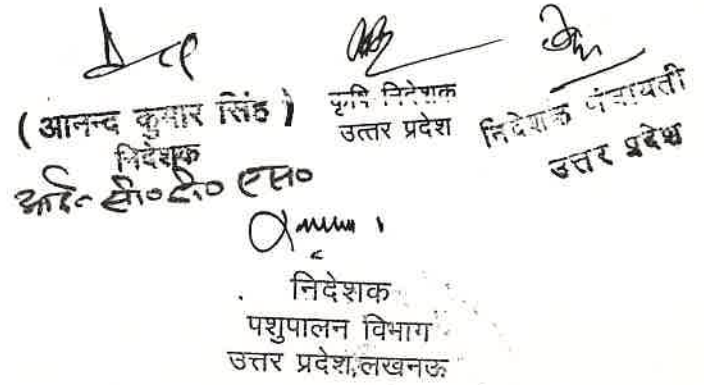 ( आनन्द कुमार सिंह )
निदेशक
आई० सी० डी० एस०
कृषि निदेशक
उत्तर प्रदेश
निदेशक पंचायती
उत्तर प्रदेश
निदेशक
पशुपालन विभाग
उत्तर प्रदेश,लखनऊ